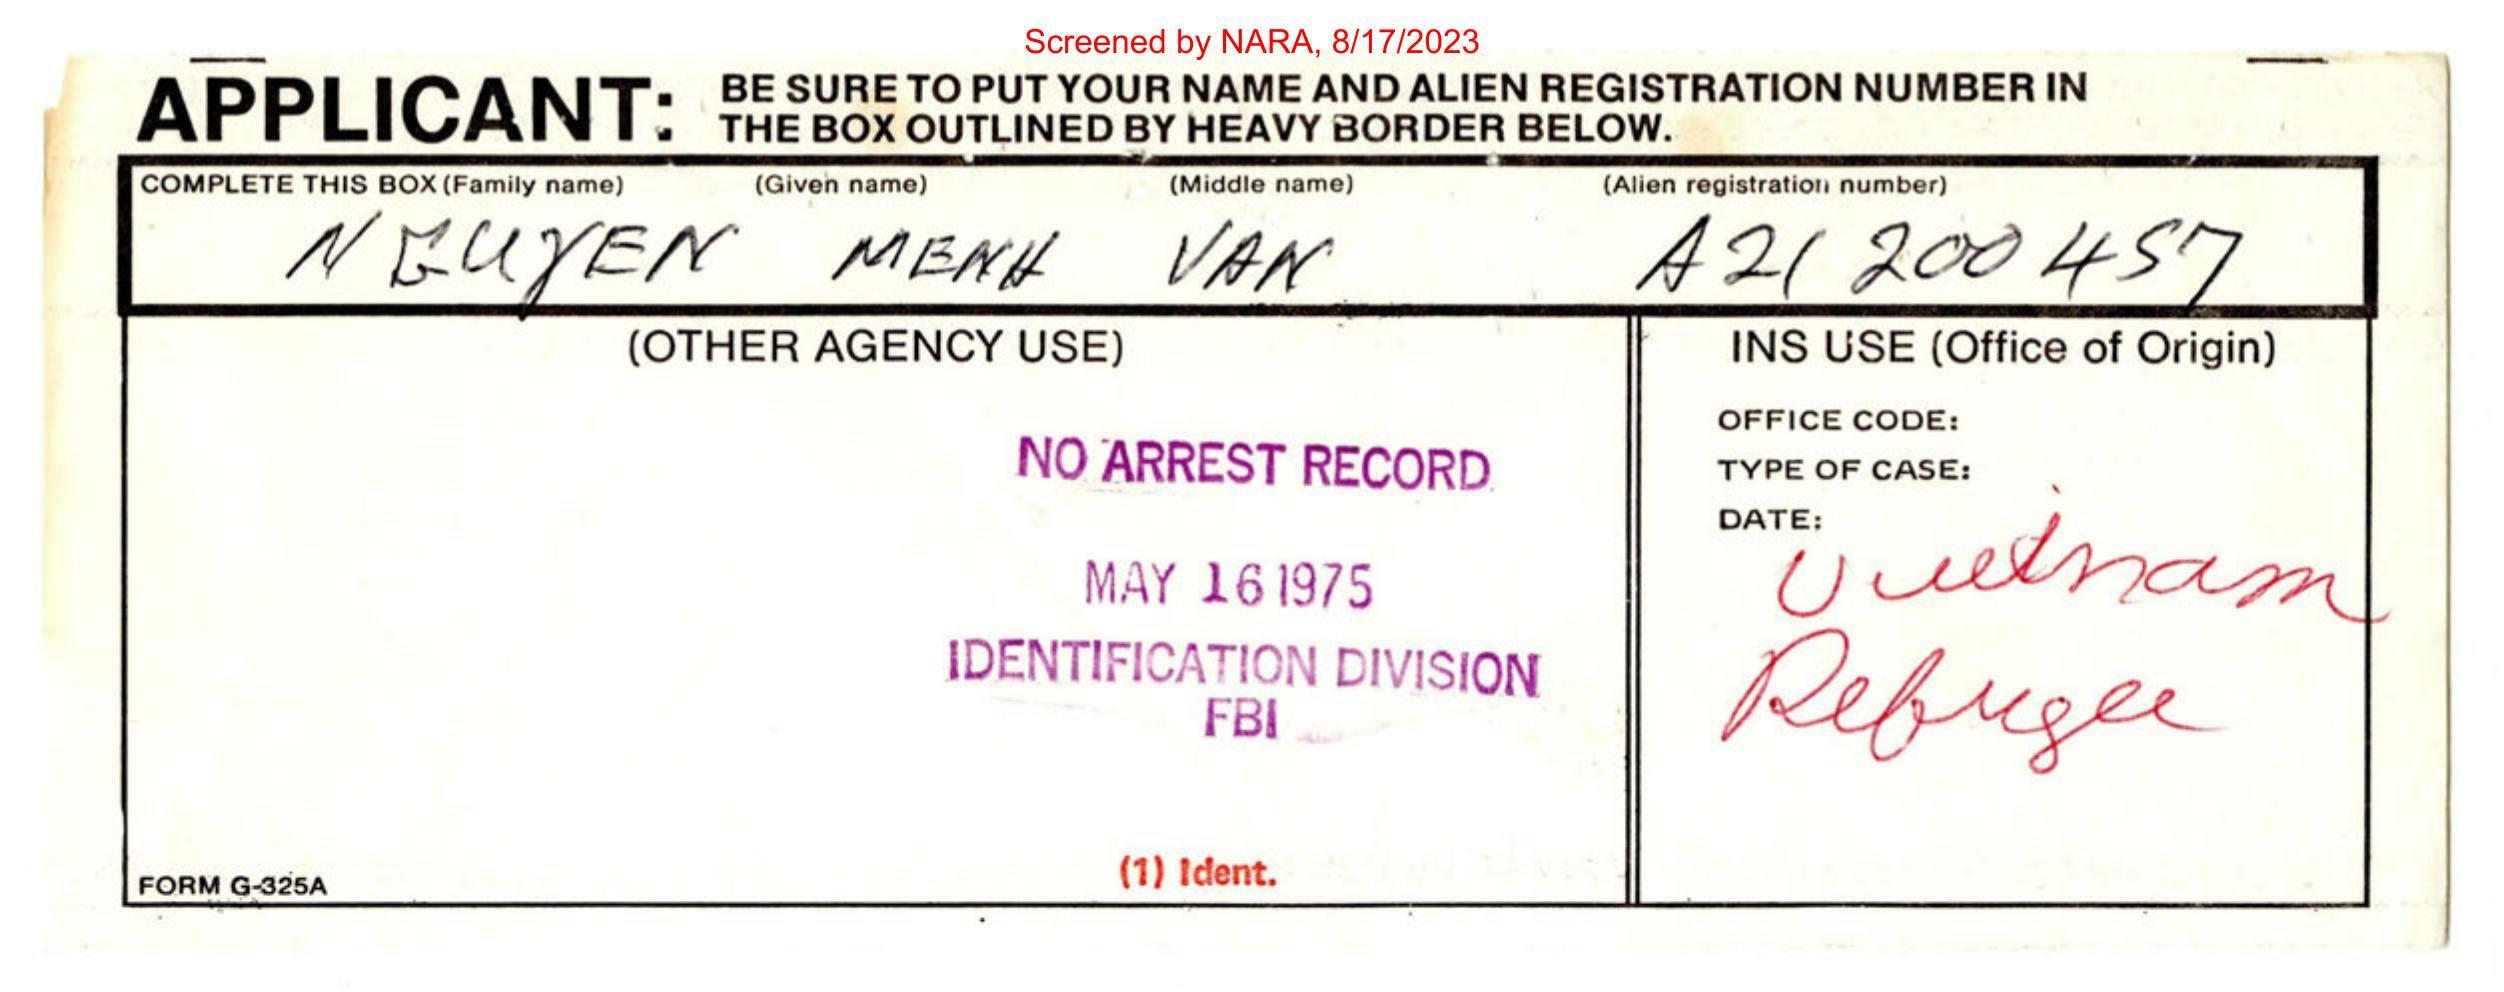 Screened by NARA, 8/17/2023
APPLICANT: BE SURE TO PUT YOUR NAME AND ALIEN REGISTRATION NUMBER IN
THE BOX OUTLINED BY HEAVY BORDER BELOW.
COMPLETE THIS BOX (Family name) (Given name) (Middle name) (Alien registration number)
NGUYEN MENH VAN A21 200 457
(OTHER AGENCY USE)
NO ARREST RECORD
MAY 16 1975
IDENTIFICATION DIVISION
FBI
(1) Ident.
FORM G-325A
INS USE (Office of Origin)
OFFICE CODE:
TYPE OF CASE:
DATE:
Vietnam
Refugee